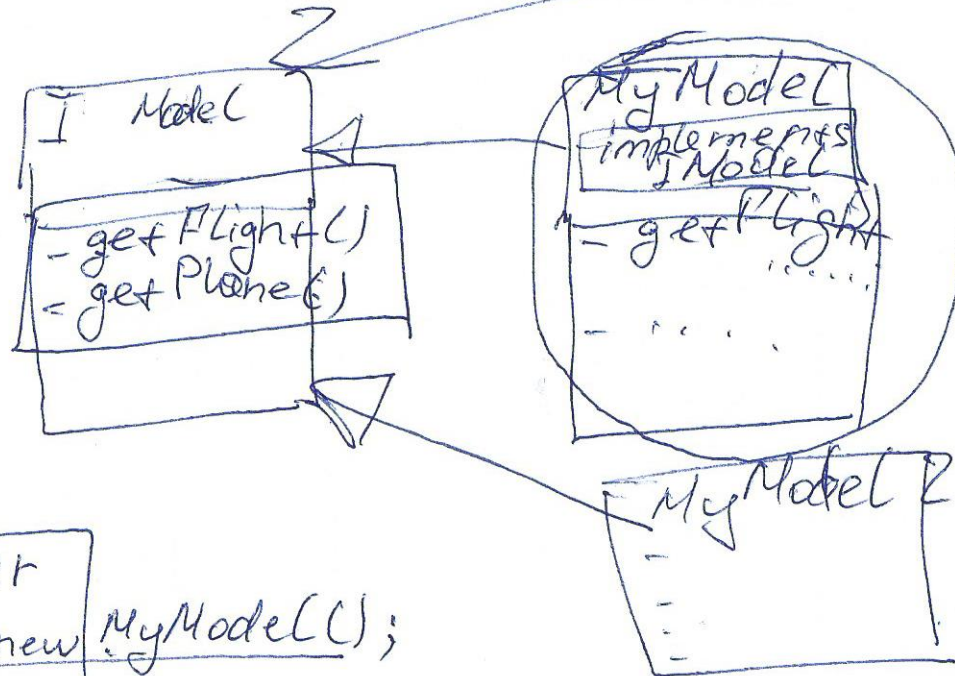 I Model
- getFlight()
- getPlane()
MyModel
- implements
IModel
- getFlight
......
- ....
MyModel 2
-
-
-
r
new MyModel();